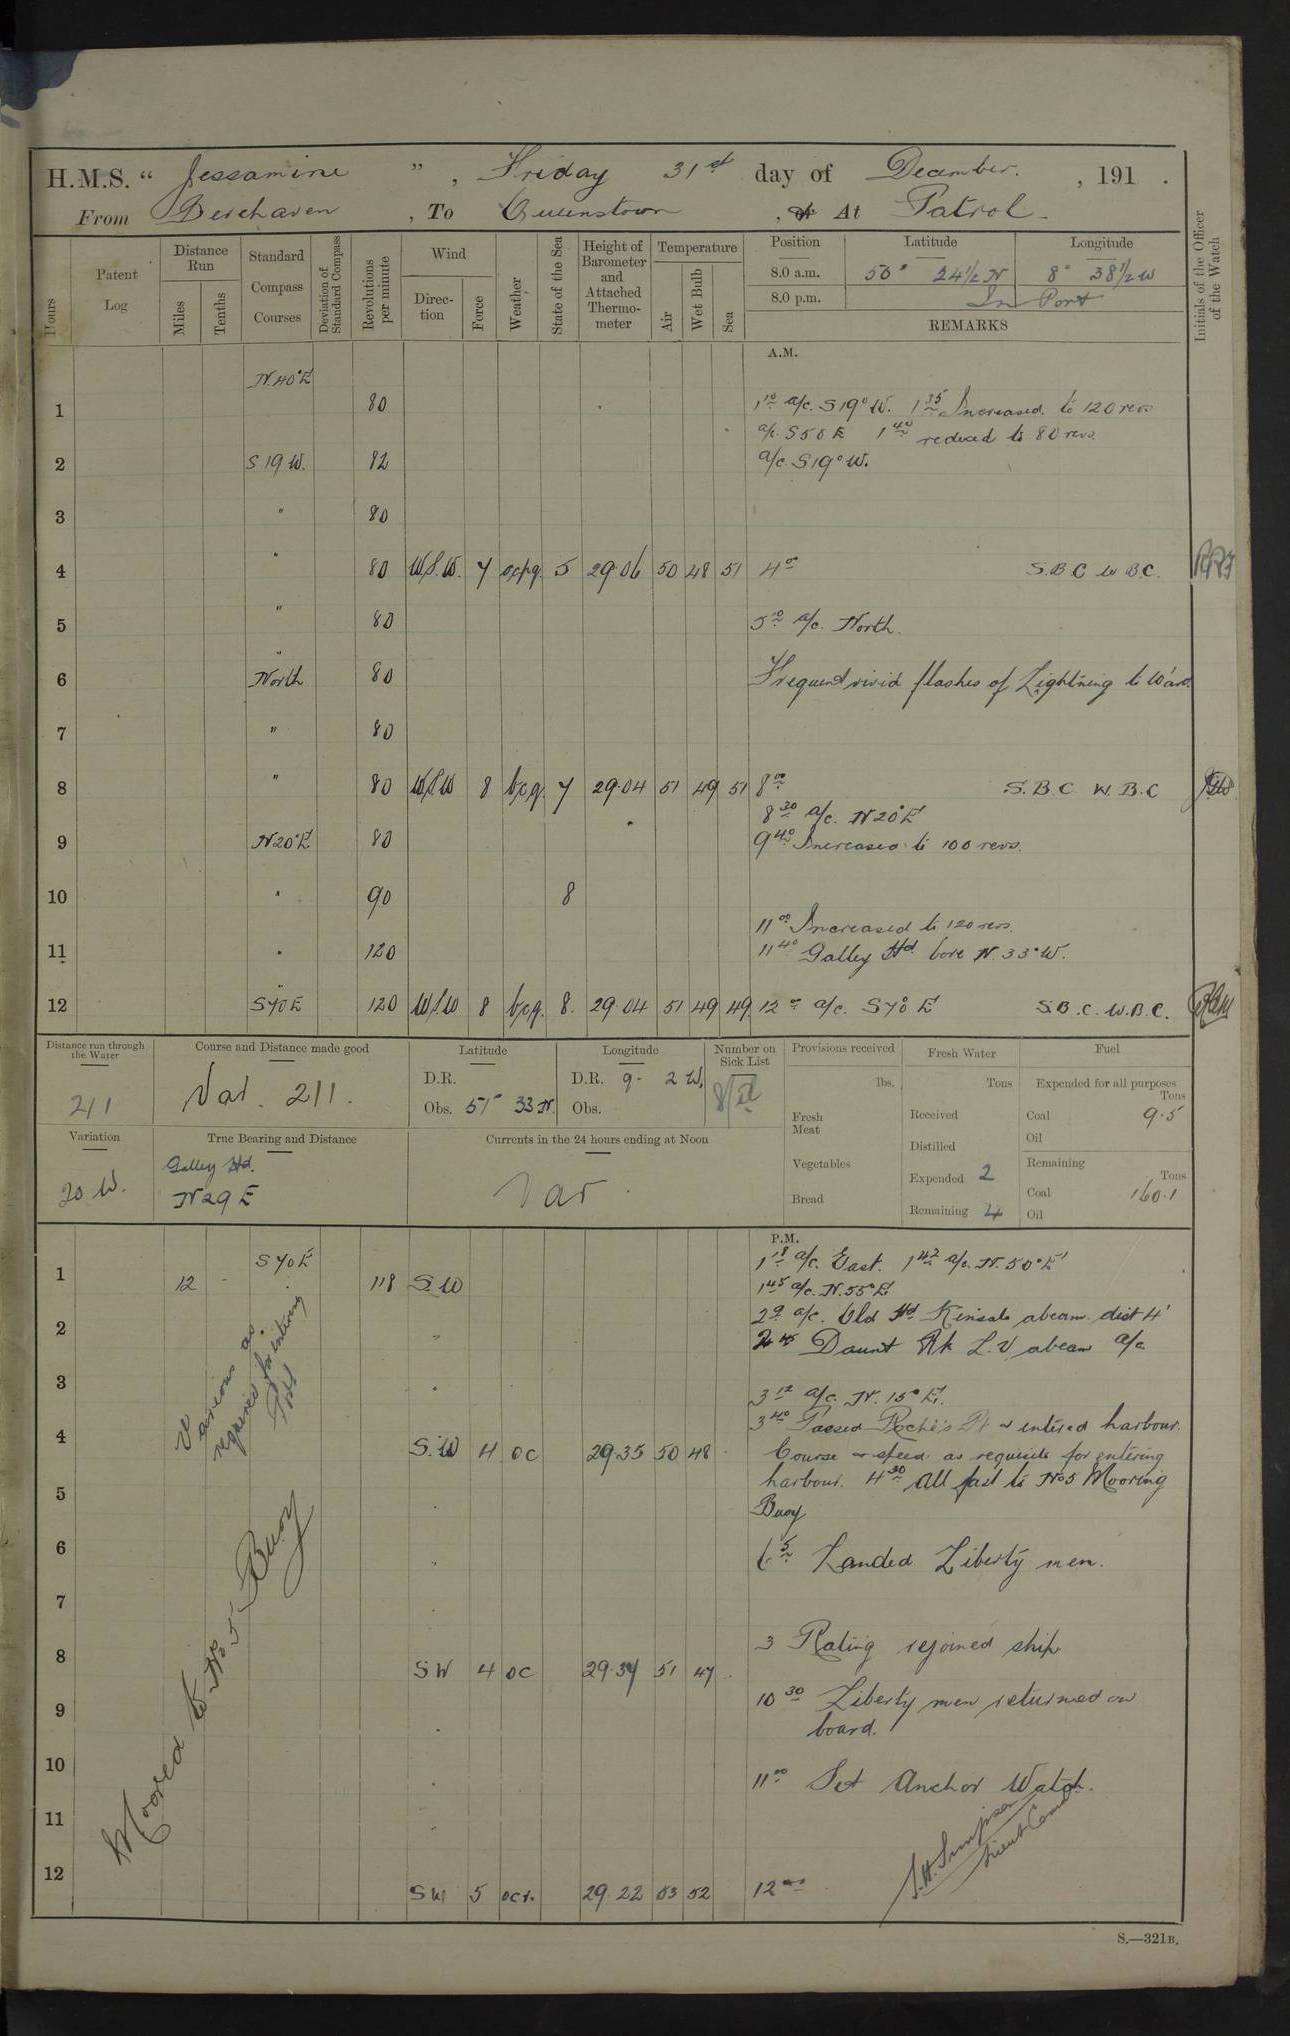 H.M.S. “ Jessamine ” , Friday 31st day of December. , 191 .
From Berehaven , To Queenstown , or At Patrol.
Hours
Patent Log
Distance Run
Miles
Tenths
Standard Compass Courses
Deviation of Standard Compass
Revolutions per minute
Wind
Direc-tion
Force
Weather
State of the Sea
Height of Barometer and Attached Thermo-meter
Temperature
Air
Wet Bulb
Sea
Position Latitude Longitude
8.0 a.m. 50° 24½ N 8° 38½ W
8.0 p.m. In Port
REMARKS
Initials of the Officer of the Watch
A.M.
N.40°E
1 80 1 10 a/c. S19°W. 1 35 Increased to 120 revs
a/c. S50E 1 40 reduced to 80 revs.
2 S19W. 82 a/c. S19°W.
3 " 80
4 " 80 W.S.W. 7 ocpq. 5 29.06 50 48 51 4 00 S.B.C W B.C.
5 " 80 5 10 a/c. North.
6 North 80 Frequent vivid flashes of Lightning to W'ard.
7 " 80
8 " 80 WSW 8 bcq. 7 29.04 51 49 51 8 00 S.B.C W.B.C
8 30 a/c. N20°E
9 N20°E 80 9 40 Increased to 100 revs.
10 " 90 8
11 00 Increased to 120 revs.
11 " 120 11 40 Galley Hd. bore N.33°W.
12 S70E 120 WSW 8 bcq. 8. 29.04 51 49 49 12 00 a/c. S70°E S.B.C. W.B.C.
Distance run through the Water
211
Course and Distance made good
Var. 211.
Latitude
D.R.
Obs. 51° 33 N.
Longitude
D.R. 9 - 2 W.
Obs.
Number on Sick List
Provisions received
lbs.
Fresh Meat
Vegetables
Bread
Fresh Water
Tons
Received
Distilled
Expended 2
Remaining 4
Fuel
Expended for all purposes
Tons
Coal 9.5
Oil
Remaining
Tons
Coal 160.1
Oil
Variation
20 W.
True Bearing and Distance
Galley Hd.
N29E
Currents in the 24 hours ending at Noon
Var.
P.M.
S70E 1 18 a/c. East. 1 42 a/c. N.50°E
1 12 - 118 S.W 1 45 a/c. N.55°E
2 2 9 a/c. Old Hd Kinsale abeam dist 4'
2 45 Daunt Rk L.V abeam a/c
Various as required for entering Port
3 3 12 a/c. N.15°E.
3 40 Passed Roche's Pt & entered harbour.
4 S.W 4 oc 29.35 50 48 Course & speed as requisite for entering
harbour. 4 30 All fast to No5 Mooring
5 Buoy
6 6 5 Landed Liberty men.
7
8 3 Rating rejoined ship
SW 4 oc 29.34 51 47
9 10 30 Liberty men returned on
board.
10 11 00 Set Anchor Watch.
11
Moored to No 5 Buoy
S.H. Simpson
Lieut Comd
12 SW 5 ocr. 29.22 53 52 12 00
S.—321B.